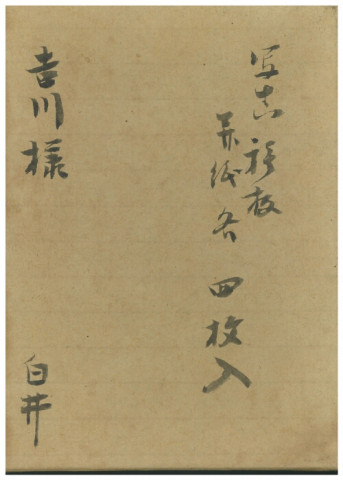 写真種板
并紙各 四枚入
吉川様
白井